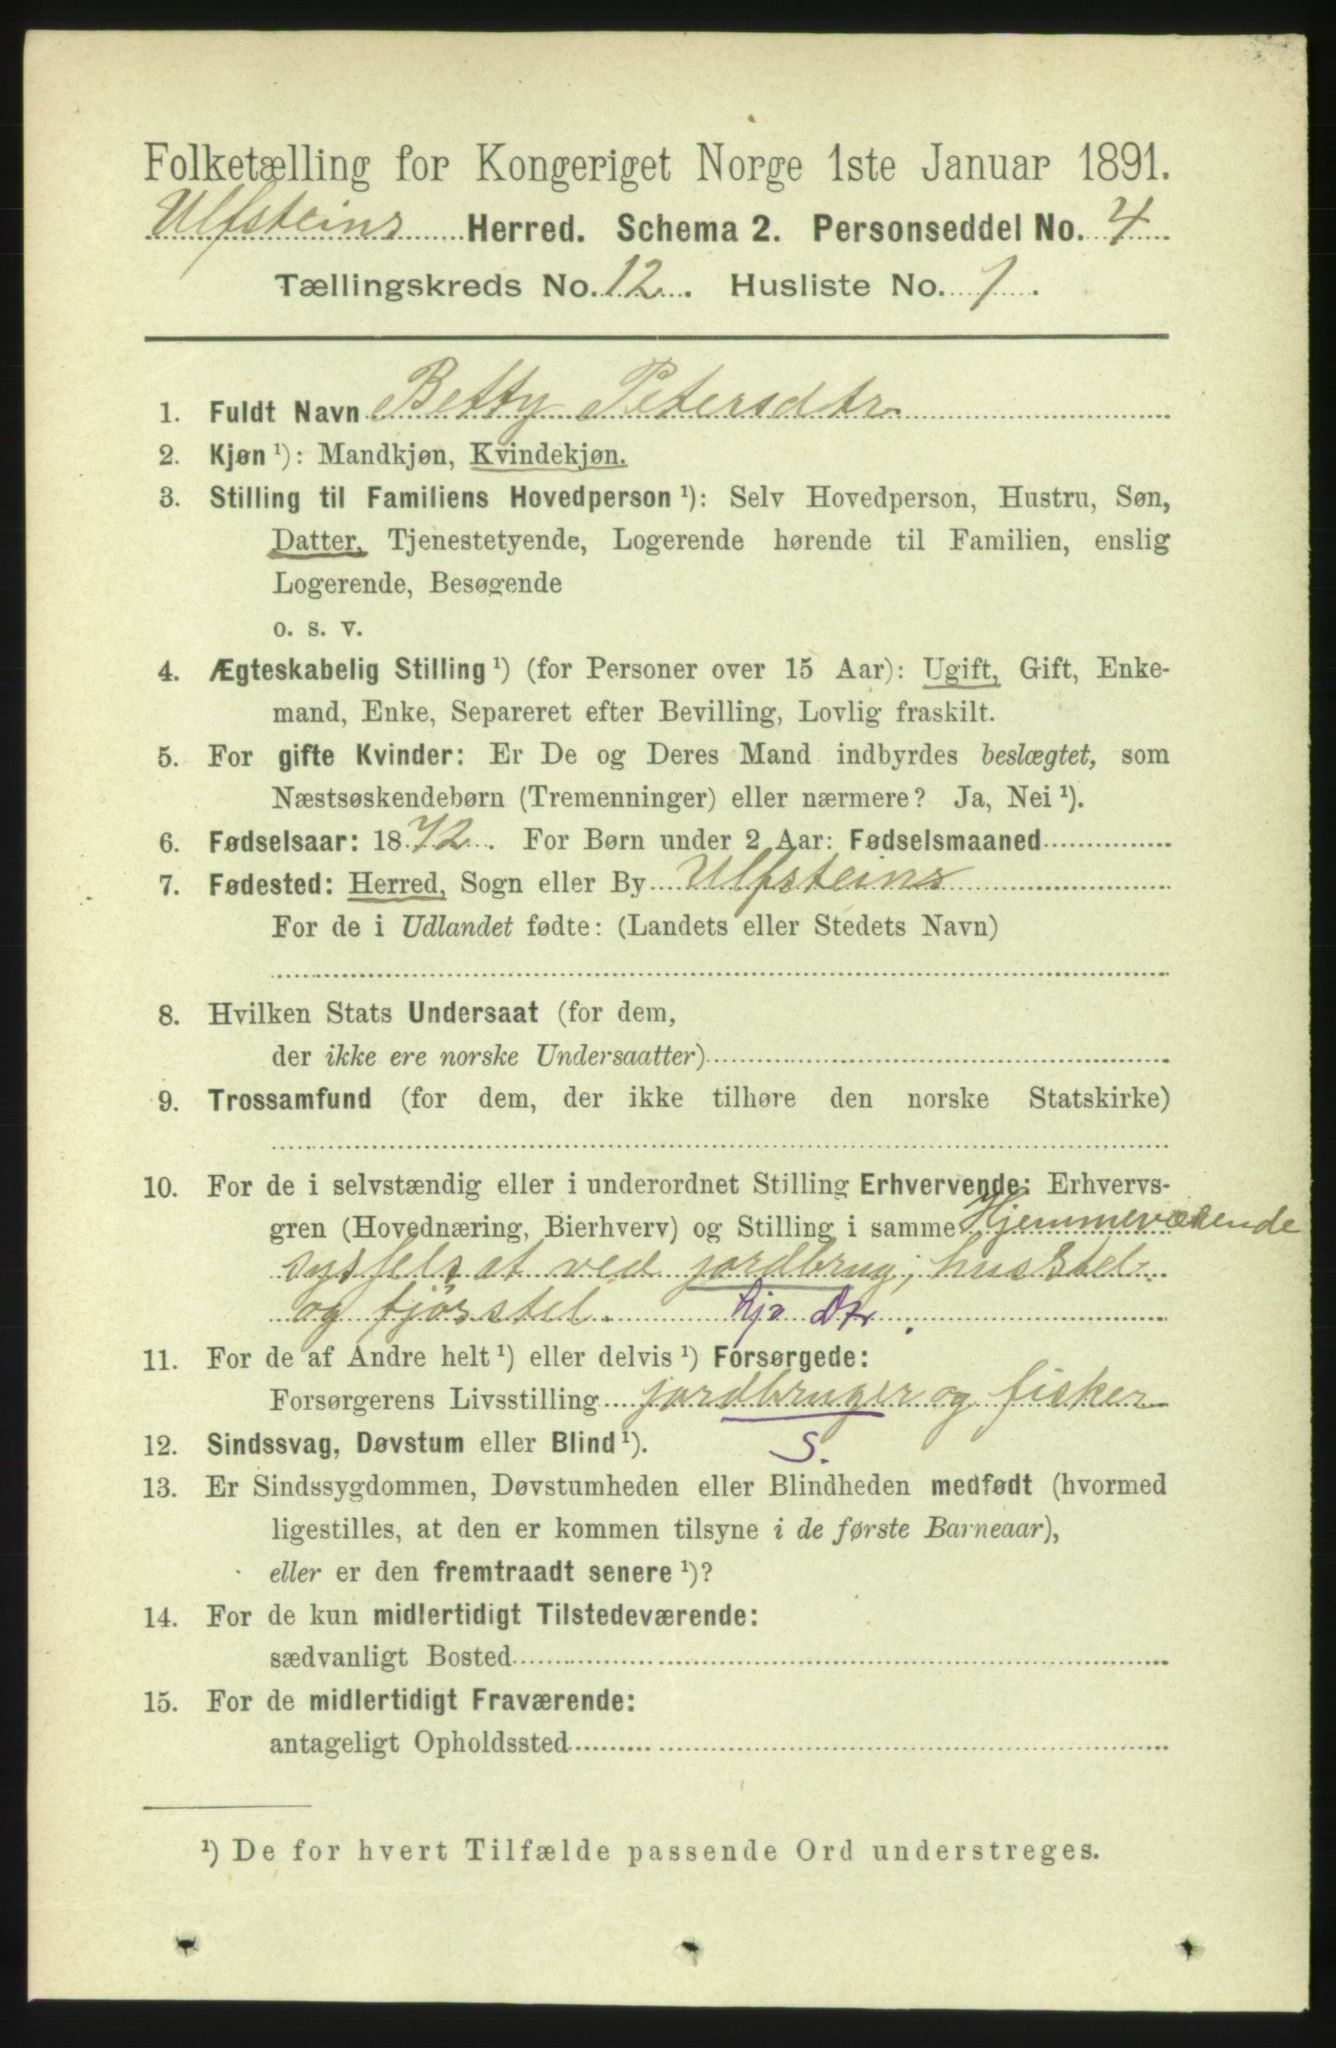 Folketælling for Kongeriget Norge 1ste Januar 1891.
Ulfsteins Herred. Schema 2. Personseddel No. 4
Tællingskreds No. 12. Husliste No. 1.
1. Fuldt Navn Betty Petersdtr.
2. Kjøn ¹): Mandkjøn, Kvindekjøn.
3. Stilling til Familiens Hovedperson ¹): Selv Hovedperson, Hustru, Søn,
Datter, Tjenestetyende, Logerende hørende til Familien, enslig
Logerende, Besøgende
o. s. v.
4. Ægteskabelig Stilling ¹) (for Personer over 15 Aar): Ugift, Gift, Enke-
mand, Enke, Separeret efter Bevilling, Lovlig fraskilt.
5. For gifte Kvinder: Er De og Deres Mand indbyrdes beslægtet, som
Næstsøskendebørn (Tremenninger) eller nærmere? Ja, Nei ¹).
6. Fødselsaar: 1872. For Børn under 2 Aar: Fødselsmaaned
7. Fødested: Herred, Sogn eller By Ulfsteins
For de i Udlandet fødte: (Landets eller Stedets Navn)
8. Hvilken Stats Undersaat (for dem,
der ikke ere norske Undersaatter)
9. Trossamfund (for dem, der ikke tilhøre den norske Statskirke)
10. For de i selvstændig eller i underordnet Stilling Erhvervende: Erhvervs-
gren (Hovednæring, Bierhverv) og Stilling i samme Hjemmeværende
sysselsat ved jordbrug, husstel
og fjösstel. hjv Dtr.
11. For de af Andre helt ¹) eller delvis ¹) Forsørgede:
Forsørgerens Livsstilling jordbruger og fisker
12. Sindssvag, Døvstum eller Blind ¹). S.
13. Er Sindssygdommen, Døvstumheden eller Blindheden medfødt (hvormed
ligestilles, at den er kommen tilsyne i de første Barneaar),
eller er den fremtraadt senere ¹)?
14. For de kun midlertidigt Tilstedeværende:
sædvanligt Bosted
15. For de midlertidigt Fraværende:
antageligt Opholdssted
¹) De for hvert Tilfælde passende Ord understreges.